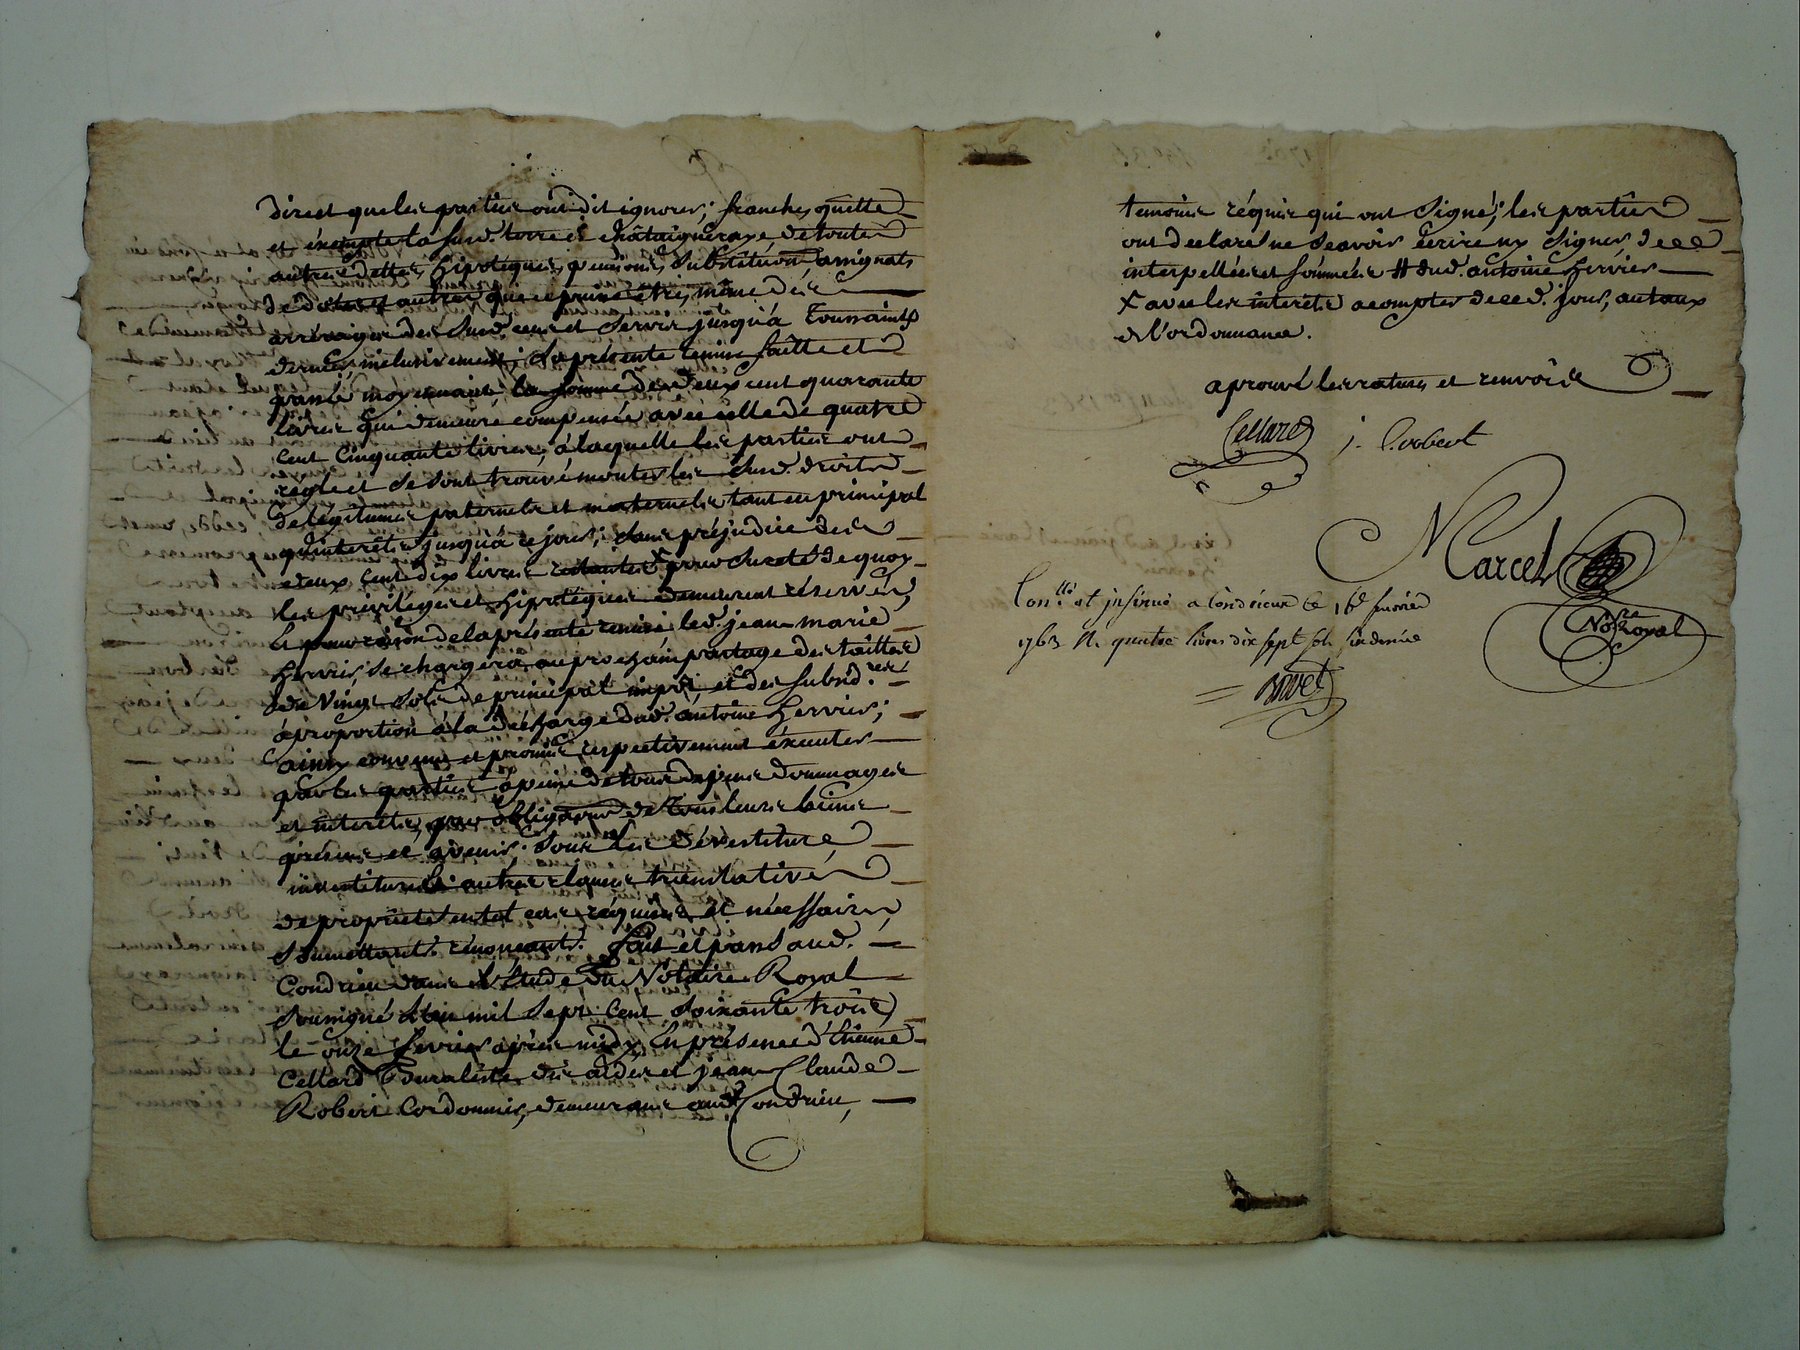 direct que les parties ont dit ignorer; franche, quitte
et éxempte la susd. terre et châtaigneraye de toutes
autres dettes, hipoteques, pensions, substitution, assignats
de dottes et autres que ce puisse être, même des
arrérages des susd. cens et servis jusqu'a Toussaints
dernier, inclusivement; la présente remise faitte et
passée moyennant la somme de deux cent quarante
livres qui demeure compensée avec celle de quatre
cent cinquante livres, à laquelle les parties ont
reglé et se sont trouvé monter les susd. droits
de légitimes paternels et maternels tant en principal
qu'interets jusqu'à ce jour; sans préjudice des
deux cent dix livres restantes X pour sureté de quoy
les privilèges et hipotéques demeurent réservés,
Et pour raison de la présente remise led. jean-marie
hervier se chargera au prochain partage des tailles
de vingt sols de principal impôt et des subsid.res
à proportion à la décharge dud. antoine hervier;
ainsy convenu et promis respectivement éxecuter
par les parties à peine de tous dépens dommages
et interets, par obligation de tous leurs biens
présens et avenir; sous les dévestiture
investiture & autres clauses translatives
de propriété en tel cas requises et nécessaires
soumettants renonçants. fait et passé aud.
Condrieu dans l'étude du Notaire Royal
soussigné l'an mil sept cent soixante trois
le onze fevrier après midy, En présence d'Etienne
Cellard Buraliste des aides et jean-Claude
Robert Cordonnier, demeurans aud. Condrieu,
temoins réquis qui ont signé; les parties
ont declaré ne sçavoir écrire ny signer, de ce
interpellées et sommées # dud. antoine hervier
X avec les interets a compter de ced. jour, au taux
de l'ordonnance.
aprouvé les ratures et renvois
Cellard j. C. robert
Marcel
No.re Royal
Con.llé et insinué a Condrieu le 16e fevrier
1763 R. quatre livres dix sept sols six deniers